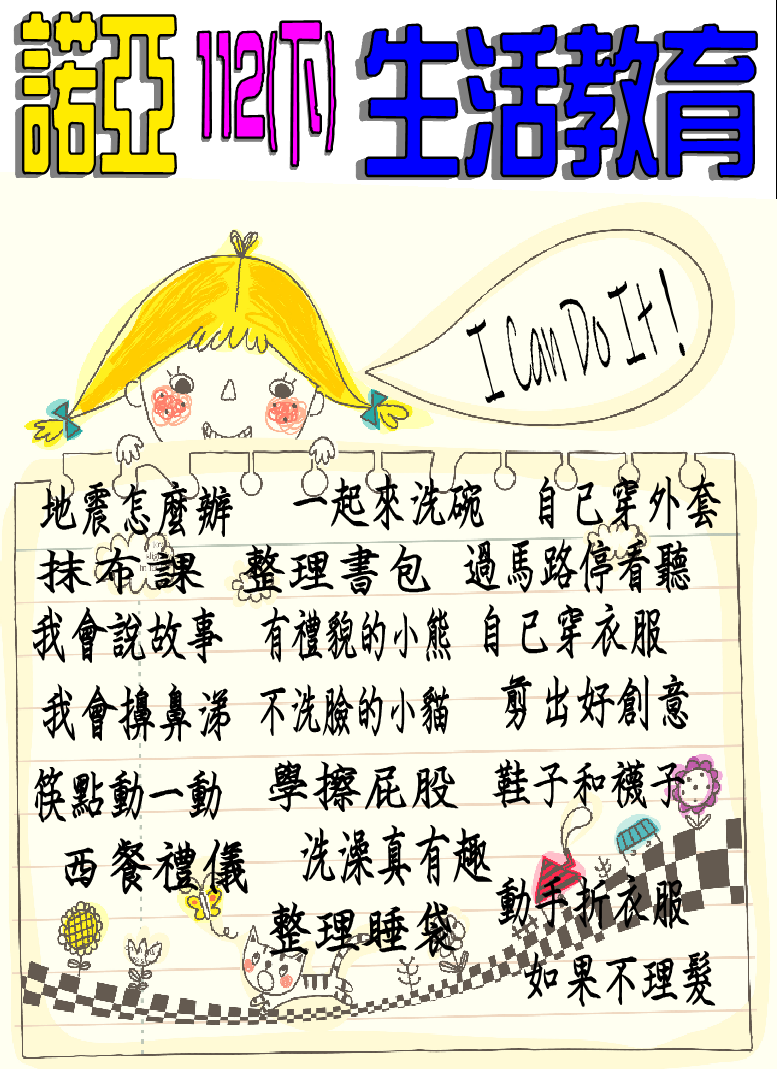 諾亞 112(下) 生活教育
I Can Do It!
地震怎麼辦 一起來洗碗 自己穿外套
抹布課 整理書包 過馬路停看聽
我會說故事 有禮貌的小熊 自己穿衣服
我會擤鼻涕 不洗臉的小貓 剪出好創意
筷點動一動 學擦屁股 鞋子和襪子
西餐禮儀 洗澡真有趣
動手折衣服
整理睡袋
如果不理髮